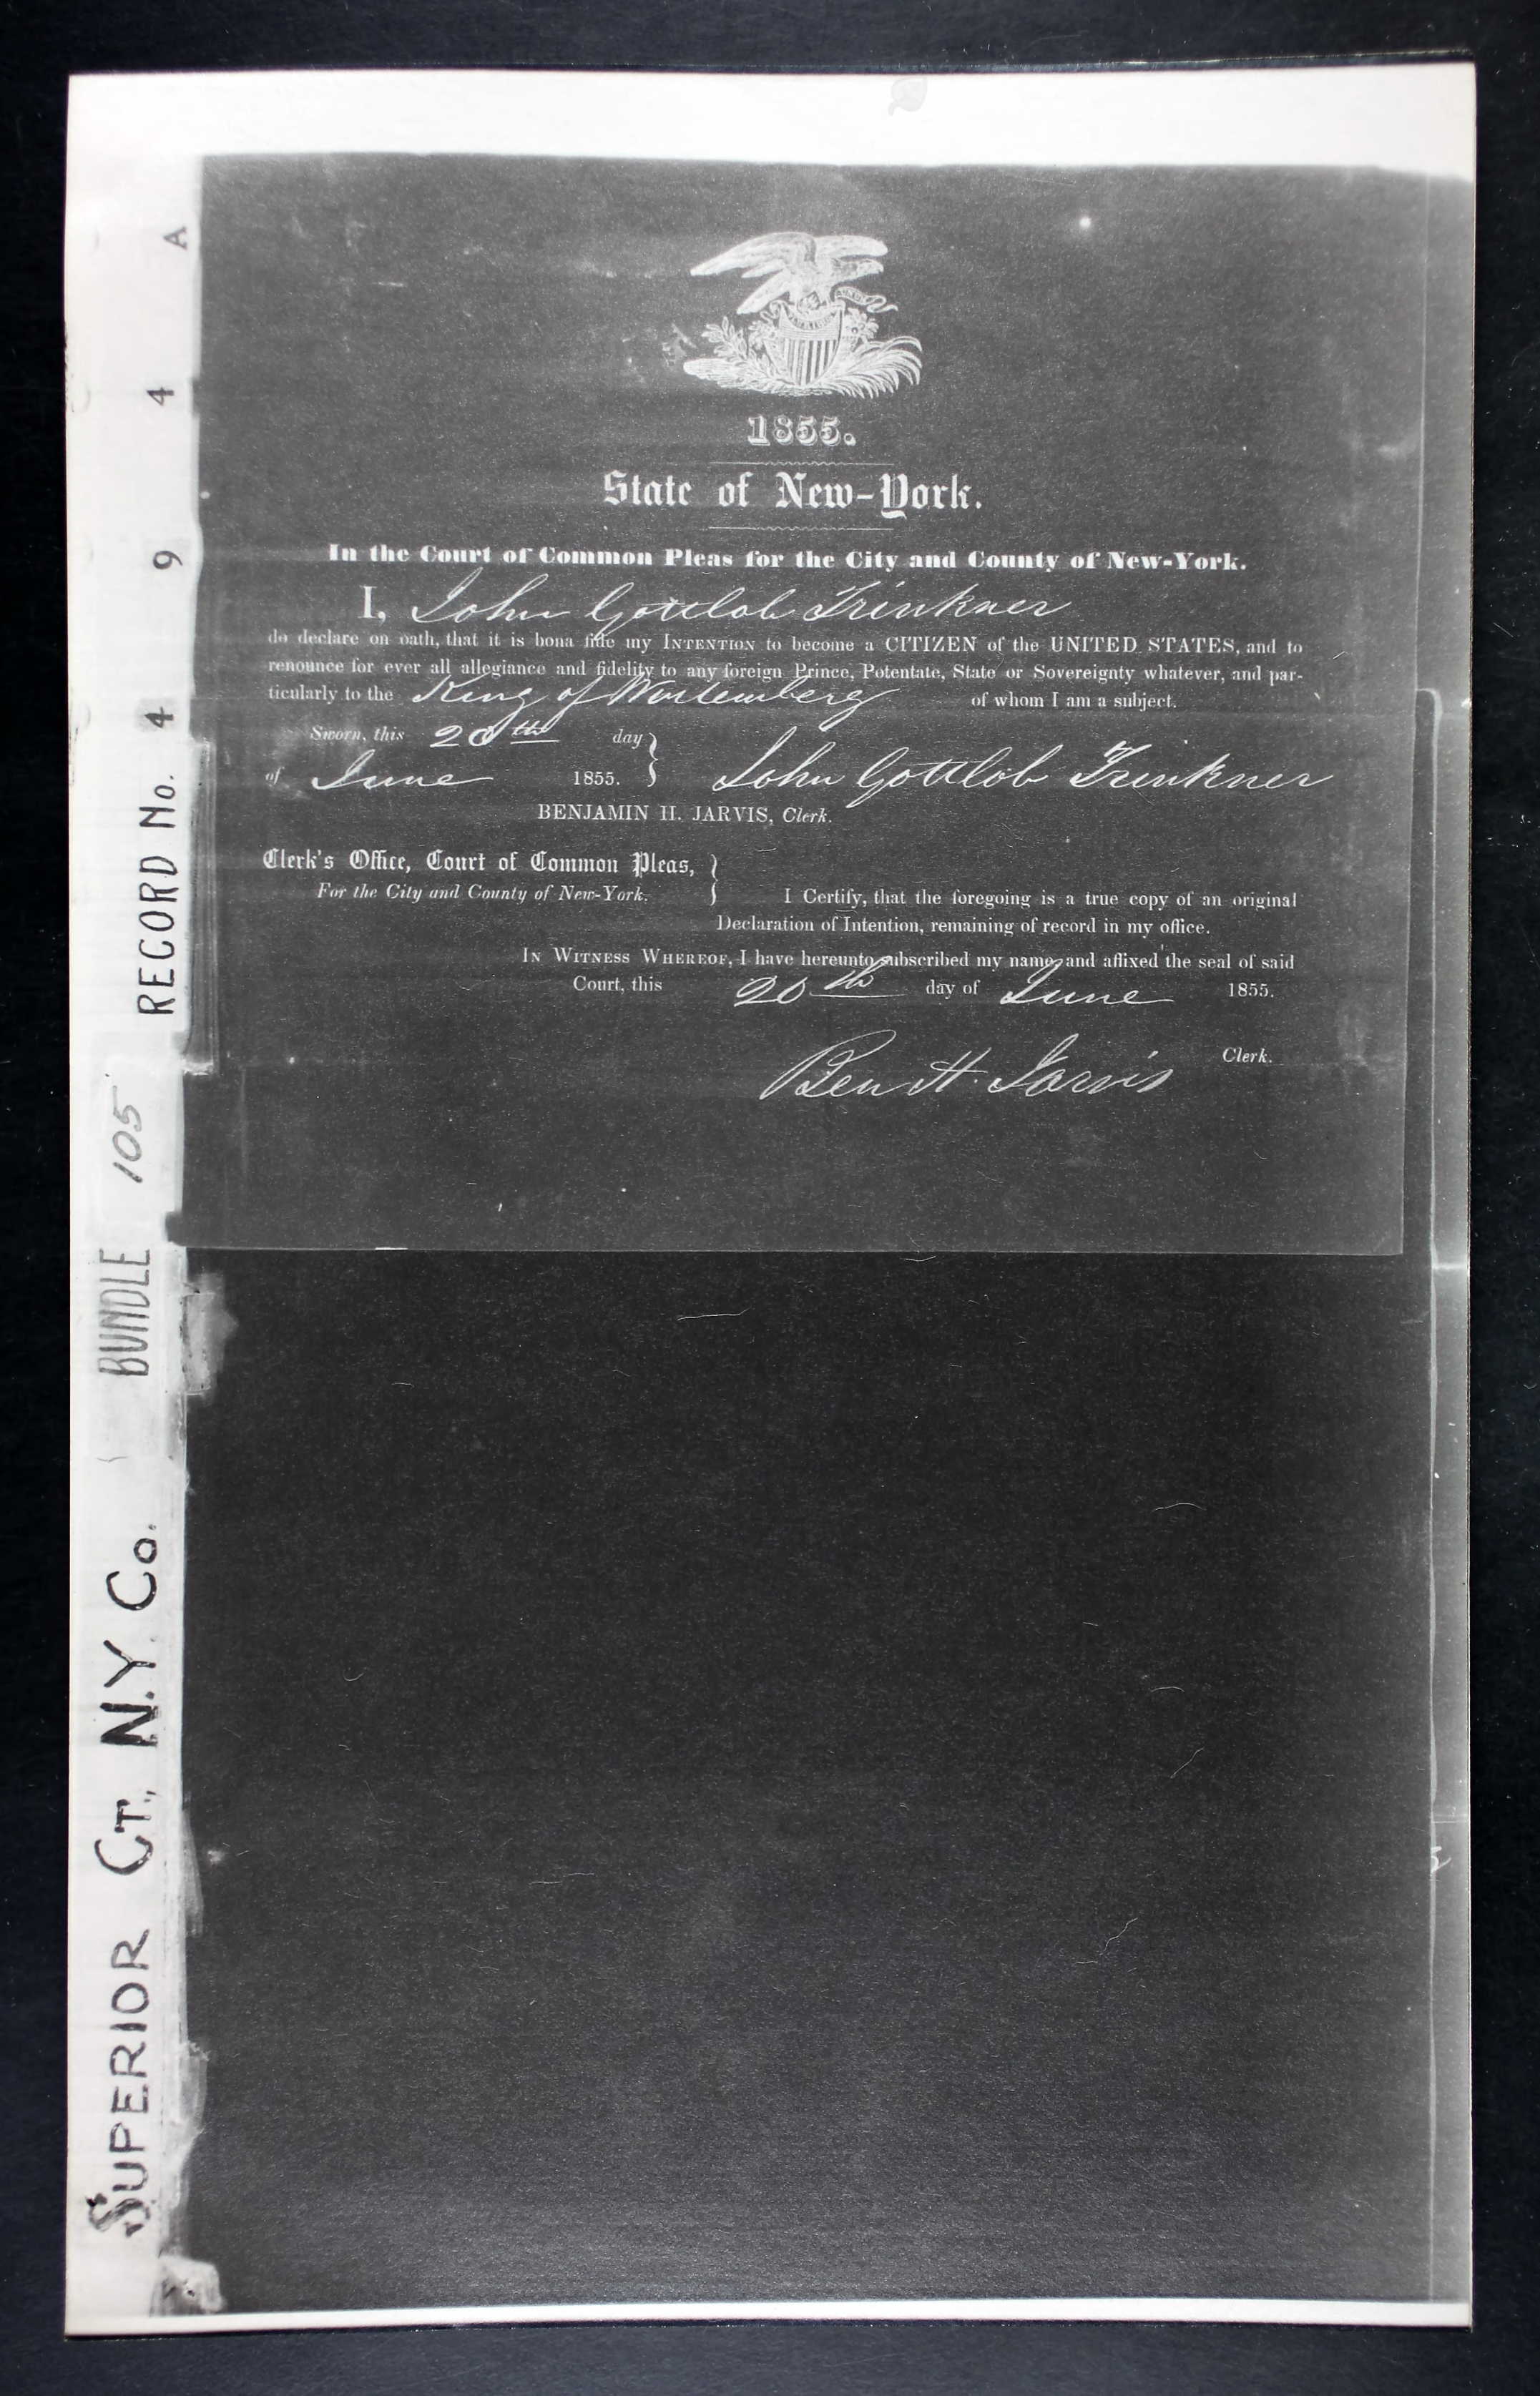 1855.
State of New-York.
In the Court of Common Pleas for the City and County of New-York.
I, John Gottlob Trinkner
do declare on oath, that it is bona fide my INTENTION to become a CITIZEN of the UNITED STATES, and to
renounce for ever all allegiance and fidelity to any foreign Prince, Potentate, State or Sovereignty whatever, and par-
ticularly to the King of Wurtemberg of whom I am a subject.
Sworn, this 20th day
of June 1855. John Gottlob Trinkner
BENJAMIN H. JARVIS, Clerk.
Clerk's Office, Court of Common Pleas,
For the City and County of New-York.
I Certify, that the foregoing is a true copy of an original
Declaration of Intention, remaining of record in my office.
IN WITNESS WHEREOF, I have hereunto subscribed my name, and affixed the seal of said
Court, this 20th day of June 1855.
Clerk.
Ben H. Jarvis
SUPERIOR CT., N.Y. Co. BUNDLE 105 RECORD No. 4 9 4 A